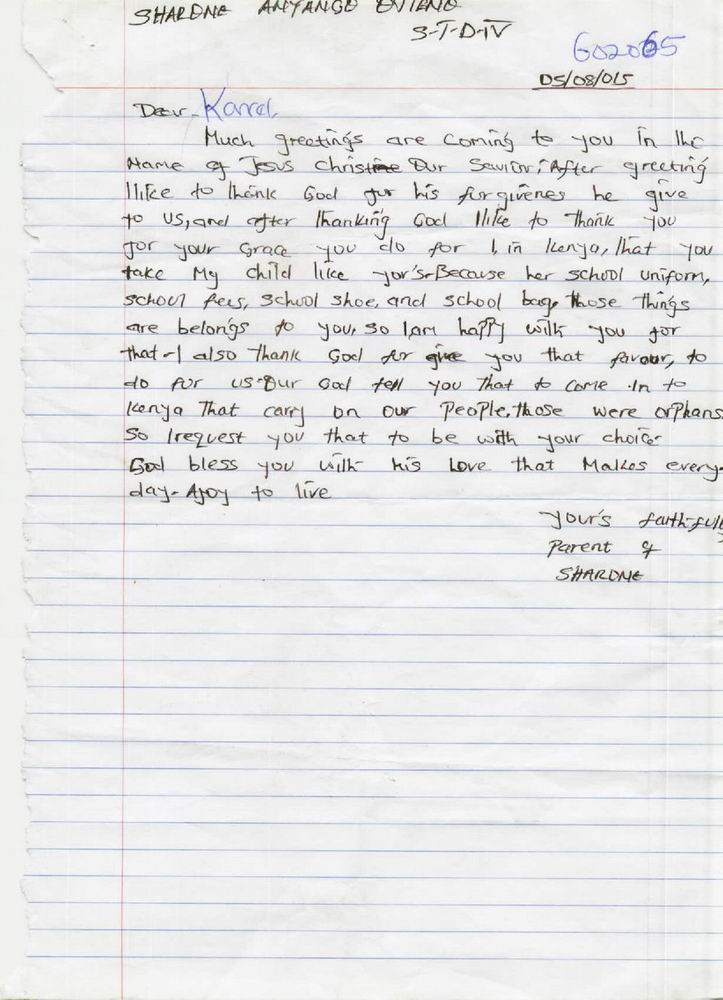 SHARDNE ANYANGO
S-T-D-IV
602065
05/08/015
Dear Karel
Much greetings are coming to you in the
Name of Jesus Christ Our Savior; After greeting
I like to thank God for his forgivenes he give
to us, and after thanking God I like to Thank you
for your Grace you do for I, in Kenya, that you
take My child like yor's-Because her school uniform,
school fees, school shoe, and school bag, those things
are belongs to you, so I am happy with you for
that-I also Thank God for give you that favour, to
do for us. Our God tell you That to come in to
Kenya That carry on our People, those were orphans
So I request you that to be with your choice-
God bless you with his Love that Makes every-
day- A joy to live
Your's faithfull
Parent of
SHARDNE